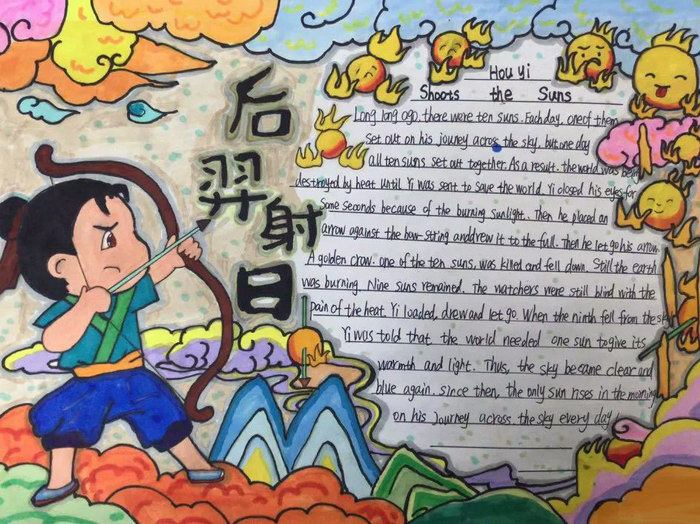 后
羿
射
日
Hou Yi
Shoots the Suns
Long long ago, there were ten suns. Each day, one of them
set out on his jouney across the sky, but one day
all ten suns set out together. As a result, the world was being
destroyed by heat until Yi was sent to save the world. Yi closed his eyes for
some seconds because of the burning sunlight. Then he placed an
arrow against the bow-string and drew it to the full. Then he let go his arrow.
A golden crow, one of the ten suns, was killed and fell down. Still the earth
was burning. Nine suns remained. The watchers were still blind with the
pain of the heat. Yi loaded, drew and let go. When the ninth fell from the sky
Yi was told that the world needed one sun to give its
warmth and light. Thus, the sky became clear and
blue again. since then, the only sun rises in the morning
on his journey across the sky every day